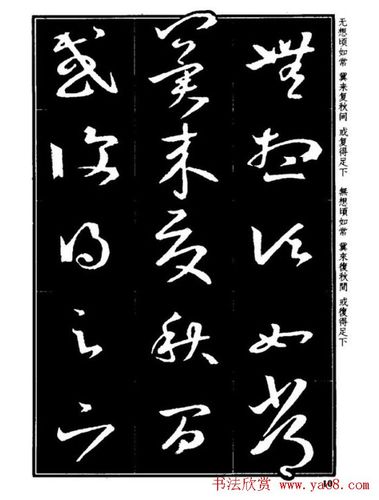 无想顷如常 冀来复秋间 或复得足下 無想頃如常 冀來復秋間 或復得足下
無想頃如常
冀來復秋間
或復得足下
10
书法欣赏 www.yac8.com